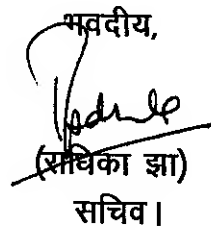 भवदीय,
(राधिका झा)
सचिव।